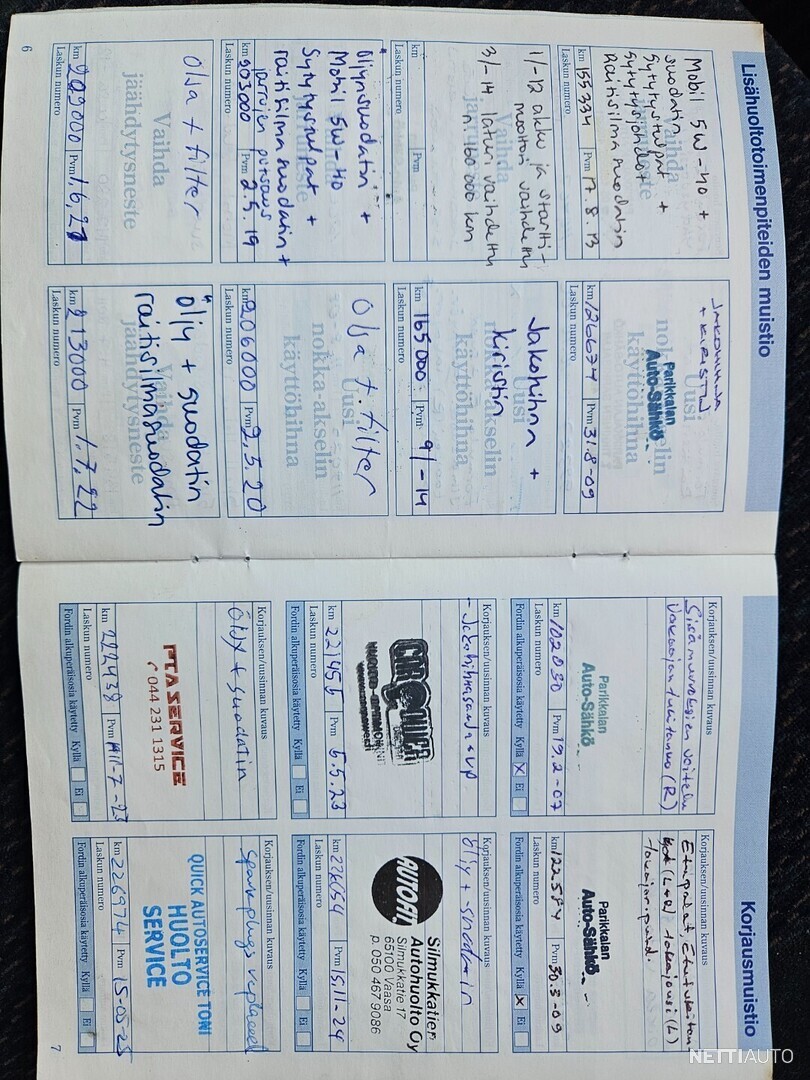 Lisähuoltotoimenpiteiden muistio
Mobil 5W-40 +
suodatin
Sytytystulpat +
Sytytysjohdot +
Raitisilma suodatin
km 155334 Pvm 7.8.13
Laskun numero
JAKOHIHNA
+ KIRISTIN
Uusi
nokka-akselin
käyttöhihna
Parikkalan
Auto-Sähkö
km 126674 Pvm 31.8-09
Laskun numero
1/-12 akku ja startti-
moottori vaihdettu
3/-14 laturi vaihdettu
n. 160 000 km
km Pvm
Laskun numero
Jakohihna +
kiristin
Uusi
nokka-akselin
käyttöhihna
km 165000 Pvm 9/-14
Laskun numero
Öljynsuodatin +
Mobil 5W-40
Sytytystulpat +
raitisilma suodatin +
jarrujen putsaus
km 203000 Pvm 2.5.19
Laskun numero
Olja + filter
Uusi
nokka-akselin
käyttöhihna
km 206000 Pvm 2,5,20
Laskun numero
Olja + filter
Vaihda
jäähdytysneste
km 209000 Pvm 1,6,21
Laskun numero
Öljy + suodatin
raitisilmasuodatin
Vaihda
jäähdytysneste
km 213000 Pvm 1,7,22
Laskun numero
6
Korjausmuistio
Korjauksen/uusinnan kuvaus
(R)
Parikkalan
Auto-Sähkö
km 102030 Pvm 19.2-07
Laskun numero
Fordin alkuperäisosia käytetty Kyllä X Ei
Korjauksen/uusinnan kuvaus
takajousi (L)
Parikkalan
Auto-Sähkö
km 122584 Pvm 30.3-09
Laskun numero
Fordin alkuperäisosia käytetty Kyllä X Ei
Korjauksen/uusinnan kuvaus
- Jakohihnasarja + vp
km 221455 Pvm 5.5.23
Laskun numero
Fordin alkuperäisosia käytetty Kyllä Ei
Korjauksen/uusinnan kuvaus
öljy + suodatin
AUTOFIT
Silmukkatien
Autohuolto Oy
Silmukkatie 17
65100 Vaasa
p. 050 467 9086
km Pvm 15.11-24
Laskun numero
Fordin alkuperäisosia käytetty Kyllä Ei
Korjauksen/uusinnan kuvaus
ÖLJY + suodatin
PTASERVICE
044 231 1315
km 222438 Pvm
Laskun numero
Fordin alkuperäisosia käytetty Kyllä Ei
Korjauksen/uusinnan kuvaus
Spark plugs replaced
QUICK AUTOSERVICE TONI
HUOLTO
SERVICE
km 226974 Pvm 15-05-25
Laskun numero
Fordin alkuperäisosia käytetty Kyllä Ei
7
NETTIAUTO